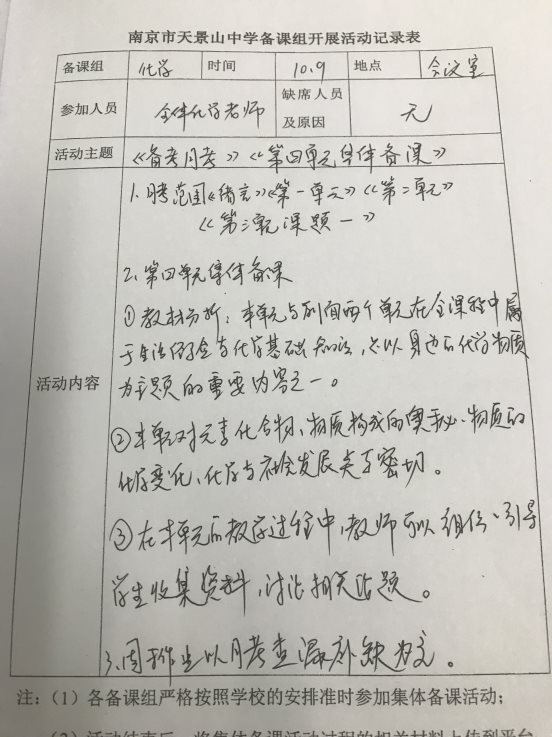 南京市天景山中学备课组开展活动记录表
备课组 化学 时间 10.9 地点 会议室
参加人员 全体化学老师 缺席人员及原因 无
活动主题 《备考月考》《第四单元集体备课》
活动内容
1.月考范围《绪言》《第一单元》《第二单元》
《第三单元课题一》
2.第四单元集体备课
①教材分析：本单元与前面两个单元在全课程中属
于生活化学基础知识，以身边的化学物质
为主题的重要内容之一。
②本单元对元素化合物、物质构成的奥秘、物质的
化学变化、化学与社会发展关系密切。
③在本单元的教学过程中，教师可以组织、引导
学生收集资料，讨论相关话题。
3.周作业以月考查漏补缺为主。
注：（1）各备课组严格按照学校的安排准时参加集体备课活动；
（2）活动结束后，将集体备课活动过程的相关材料上传到平台